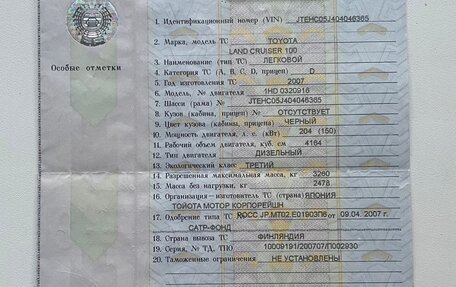 1. Идентификационный номер (VIN) JTEHC05J404046365
2. Марка, модель ТС TOYOTA
LAND CRUISER 100
Особые отметки
3. Наименование (тип ТС) ЛЕГКОВОЙ
4. Категория ТС (A, B, C, D, прицеп) D
5. Год изготовления ТС 2007
6. Модель, № двигателя 1HD 0320916
7. Шасси (рама) № JTEHC05J404046365
8. Кузов (кабина, прицеп) № ОТСУТСТВУЕТ
9. Цвет кузова (кабины, прицепа) ЧЕРНЫЙ
10. Мощность двигателя, л. с. (кВт) 204 (150)
11. Рабочий объем двигателя, куб. см 4164
12. Тип двигателя ДИЗЕЛЬНЫЙ
13. Экологический класс ТРЕТИЙ
14. Разрешенная максимальная масса, кг 3260
15. Масса без нагрузки, кг 2478
16. Организация - изготовитель ТС (страна) ЯПОНИЯ
ТОЙОТА МОТОР КОРПОРЕЙШН
17. Одобрение типа ТС № РОСС JP.MT02.E01903П6 от 09.04. 2007 г.
САТР-ФОНД
18. Страна вывоза ТС ФИНЛЯНДИЯ
19. Серия, № ТД, ТПО 10009191/200707/П002930
20. Таможенные ограничения НЕ УСТАНОВЛЕНЫ